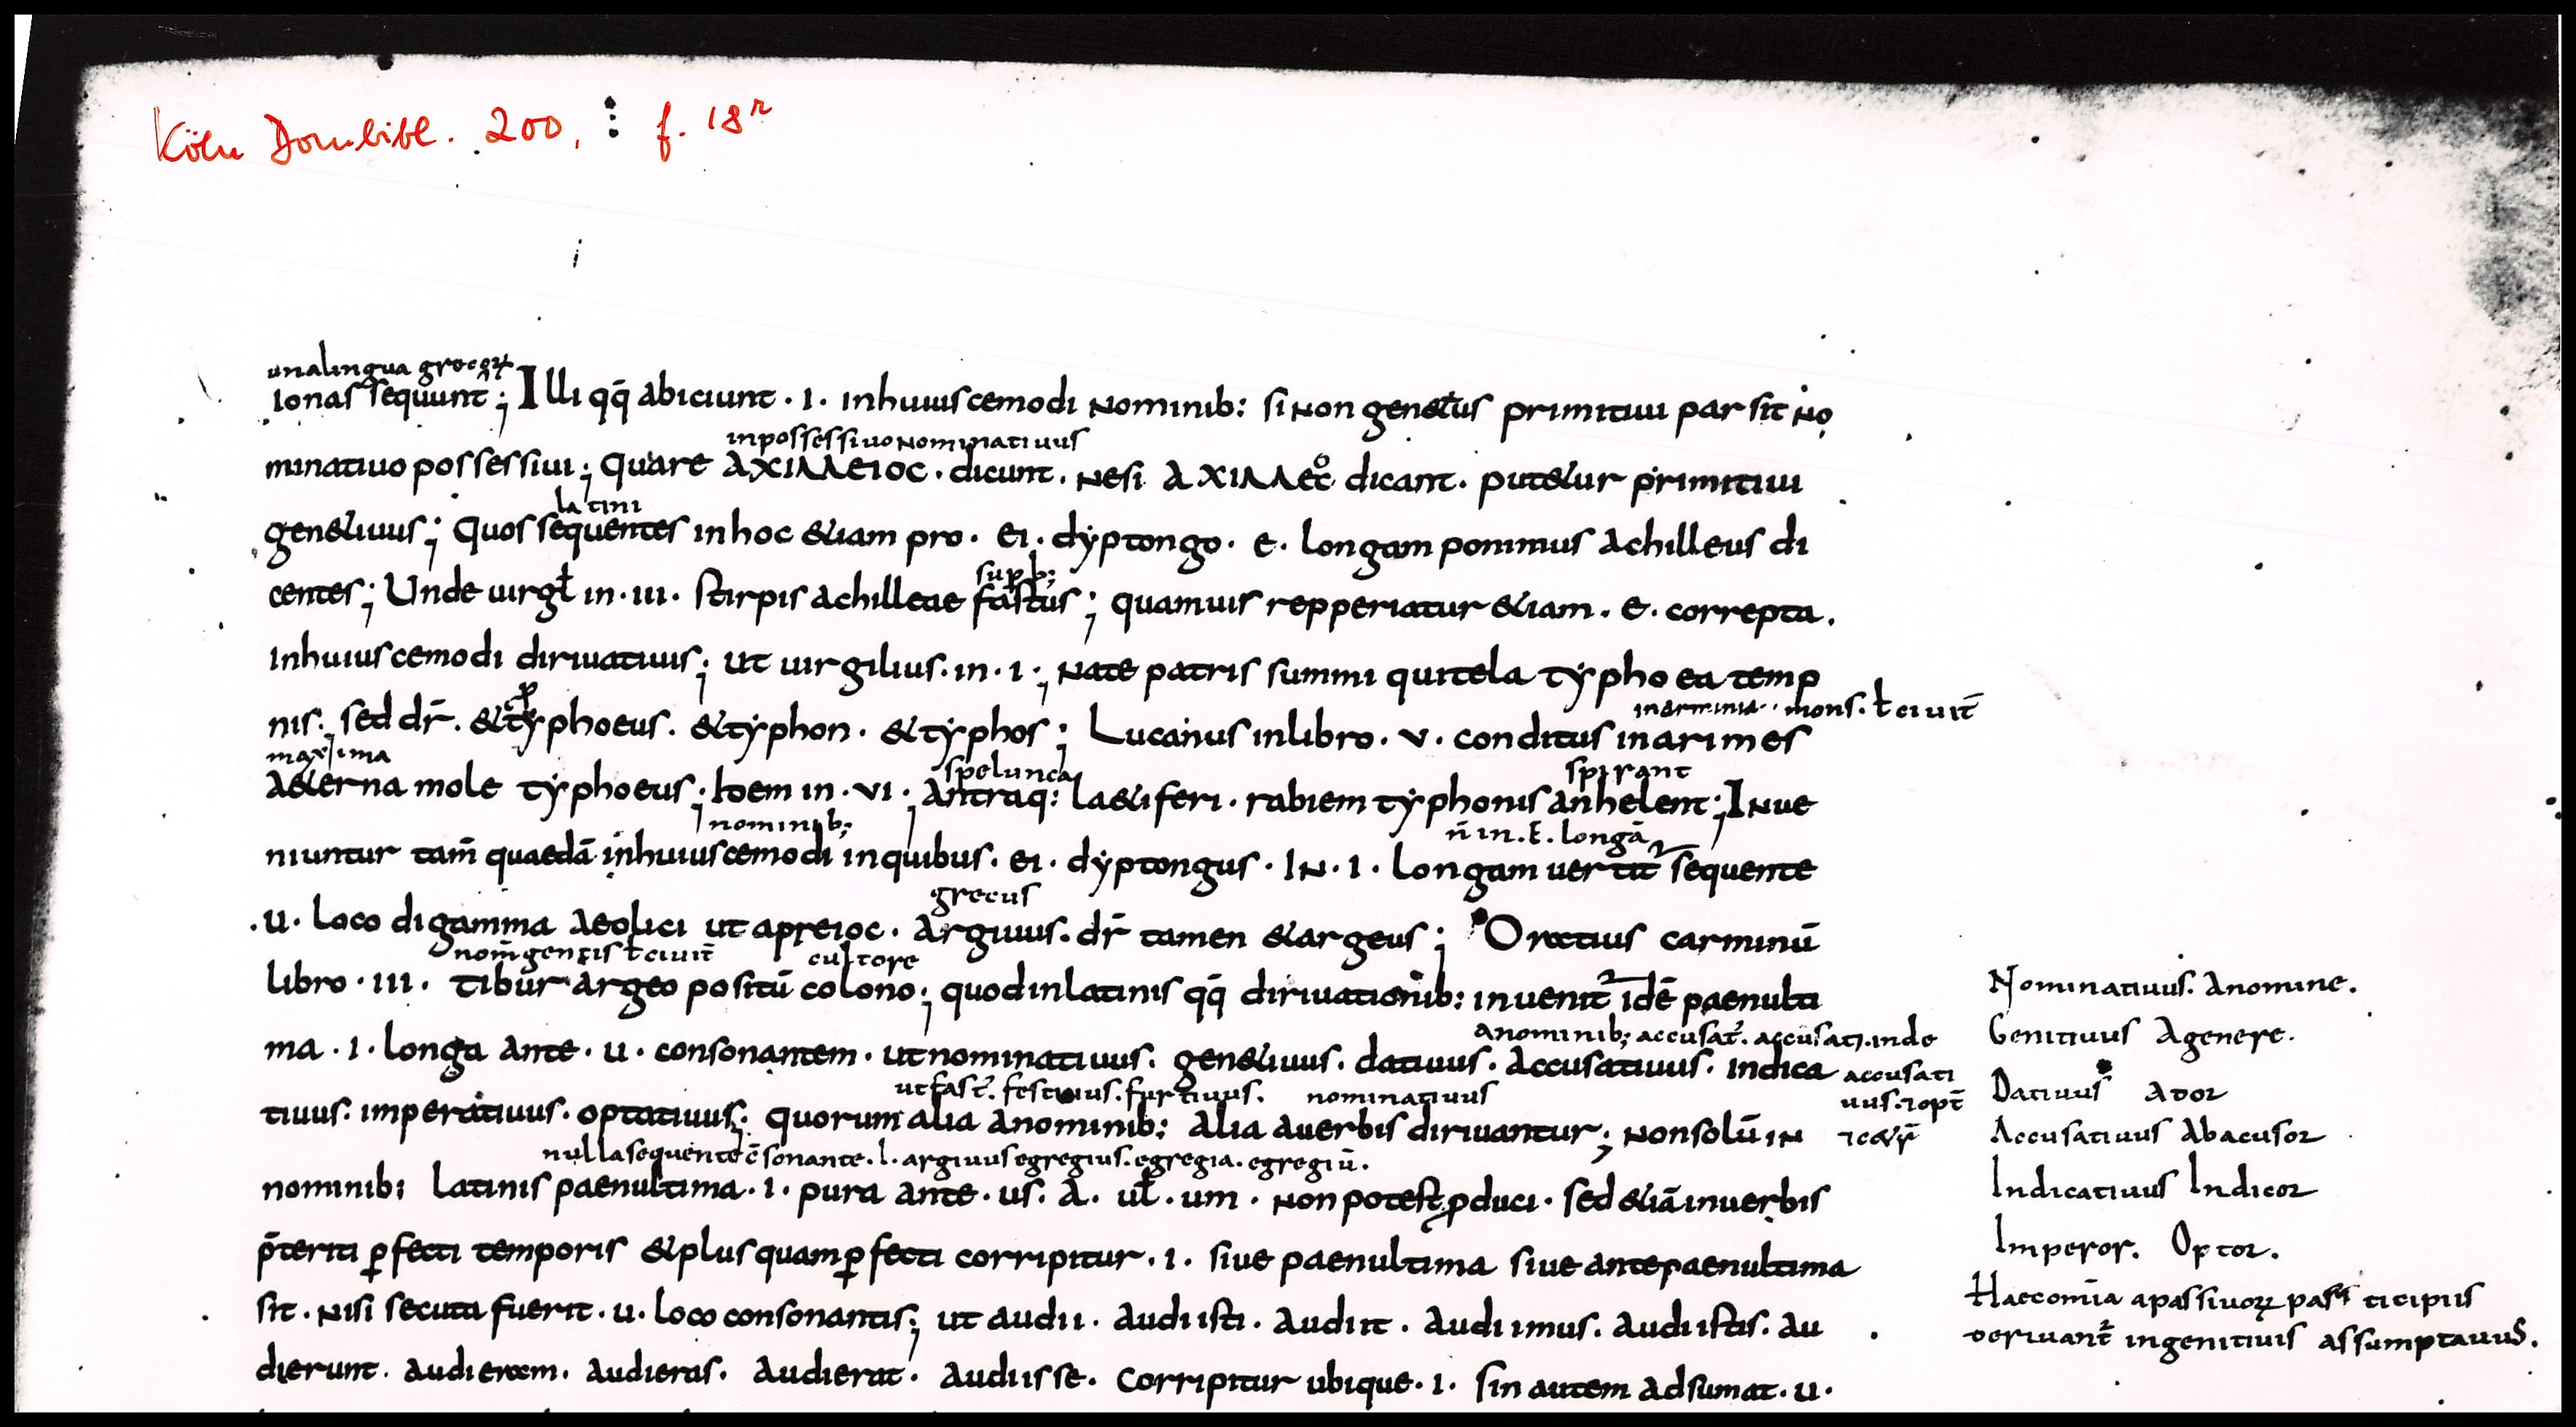 Köln Dombibl. 200, f. 18r
una lingua grecoꝝ
ionas sequunt̃; Illi qq̄ abiciunt · i · inhuiuscemodi nominib: si non genetius primitiui par sit no
inpossessiuo nominatiuus
minatiuo possessiui; quare ΑΧΙΛΛΕΙΟC · dicunt · nesi ΑΧΙΛΛΕOC dicant · putetur primitiui
latini
genetiuus; Quos sequentes inhoc etiam pro · ei · dyptongo · e · longam ponimus achilleus di
sup̱b;
centes; Unde uirgł in · iii · stirpis achilleae fastus; quamuis repperiatur etiam · e · correpta ·
inhuiuscemodi diriuatiuis; ut uirgilius · in · i ·; Nate patris summi qui tela typhoea temp
inarminia · mons · ł ciuit̄
nis · sed dr̄ · & typhoeus · & typhon · & typhos; Lucanus inlibro · v · conditus inarimes
maxima
spelunca
spirant
Aeterna mole typhoeus; Item in · vi · Antraq: laetiferi · rabiem typhonis anhelent; Inue
nominib;
n̄ in · E · longā
niuntur tam̄ quaedā inhuiuscemodi inquibus · ei · dyptongus · in · i · longam uertit̃ sequente
grecus
· u · loco digamma aeolici ut ΑΡΓΕΙΟC · Argiuus · dr̄ tamen & argeus; Oratius carminū
nom̄ gentis ł ciuit̄
cultore
libro · iii · tibur argeo positū colono; quod inlatinis qq̄ diriuationib: inuenit̃ idē paenulti
Anominib; accusat̃ · accusati · inde
ma · i · longa ante · u · consonantem · ut nominatiuus · genetiuus · datiuus · Accusatiuus · indica
accusati
ut fast̃ · festiuus · furtiuus · nominatiuus
uus · ⁊ opt̄
tiuus · imperatiuus · optatiuus; quorum alia anominib: alia auerbis diriuantur; Nonsolū in
nulla sequente c̄sonante · l · argiuus egregius · egregia · egregiū ·
nominib; latinis paenultima · i · pura ante · us · a · uł · um · non potest ꝓduci · sed etiā inuerbis
p̄teriti ꝑfecti temporis & plusquamꝑfecti corripitur · i · siue paenultima siue antepaenultima
sit · nisi secuta fuerit · u · loco consonantis; ut audii · audiisti · audiit · audiimus · audiistis · au
dierunt · audieram · audieras · audierat · audiisse · corripitur ubique · i · sin autem adsumat · u ·
Nominatiuus · Anomine ·
Genitiuus Agenere ·
Datiuus Ador
Accusatiuus Abacusor
Indicatiuus Indicor
Imperor · Optor ·
Haecom̄ia apassiuoꝝ participiis
deriuant̃ ingenitiuis assumpta uus ·